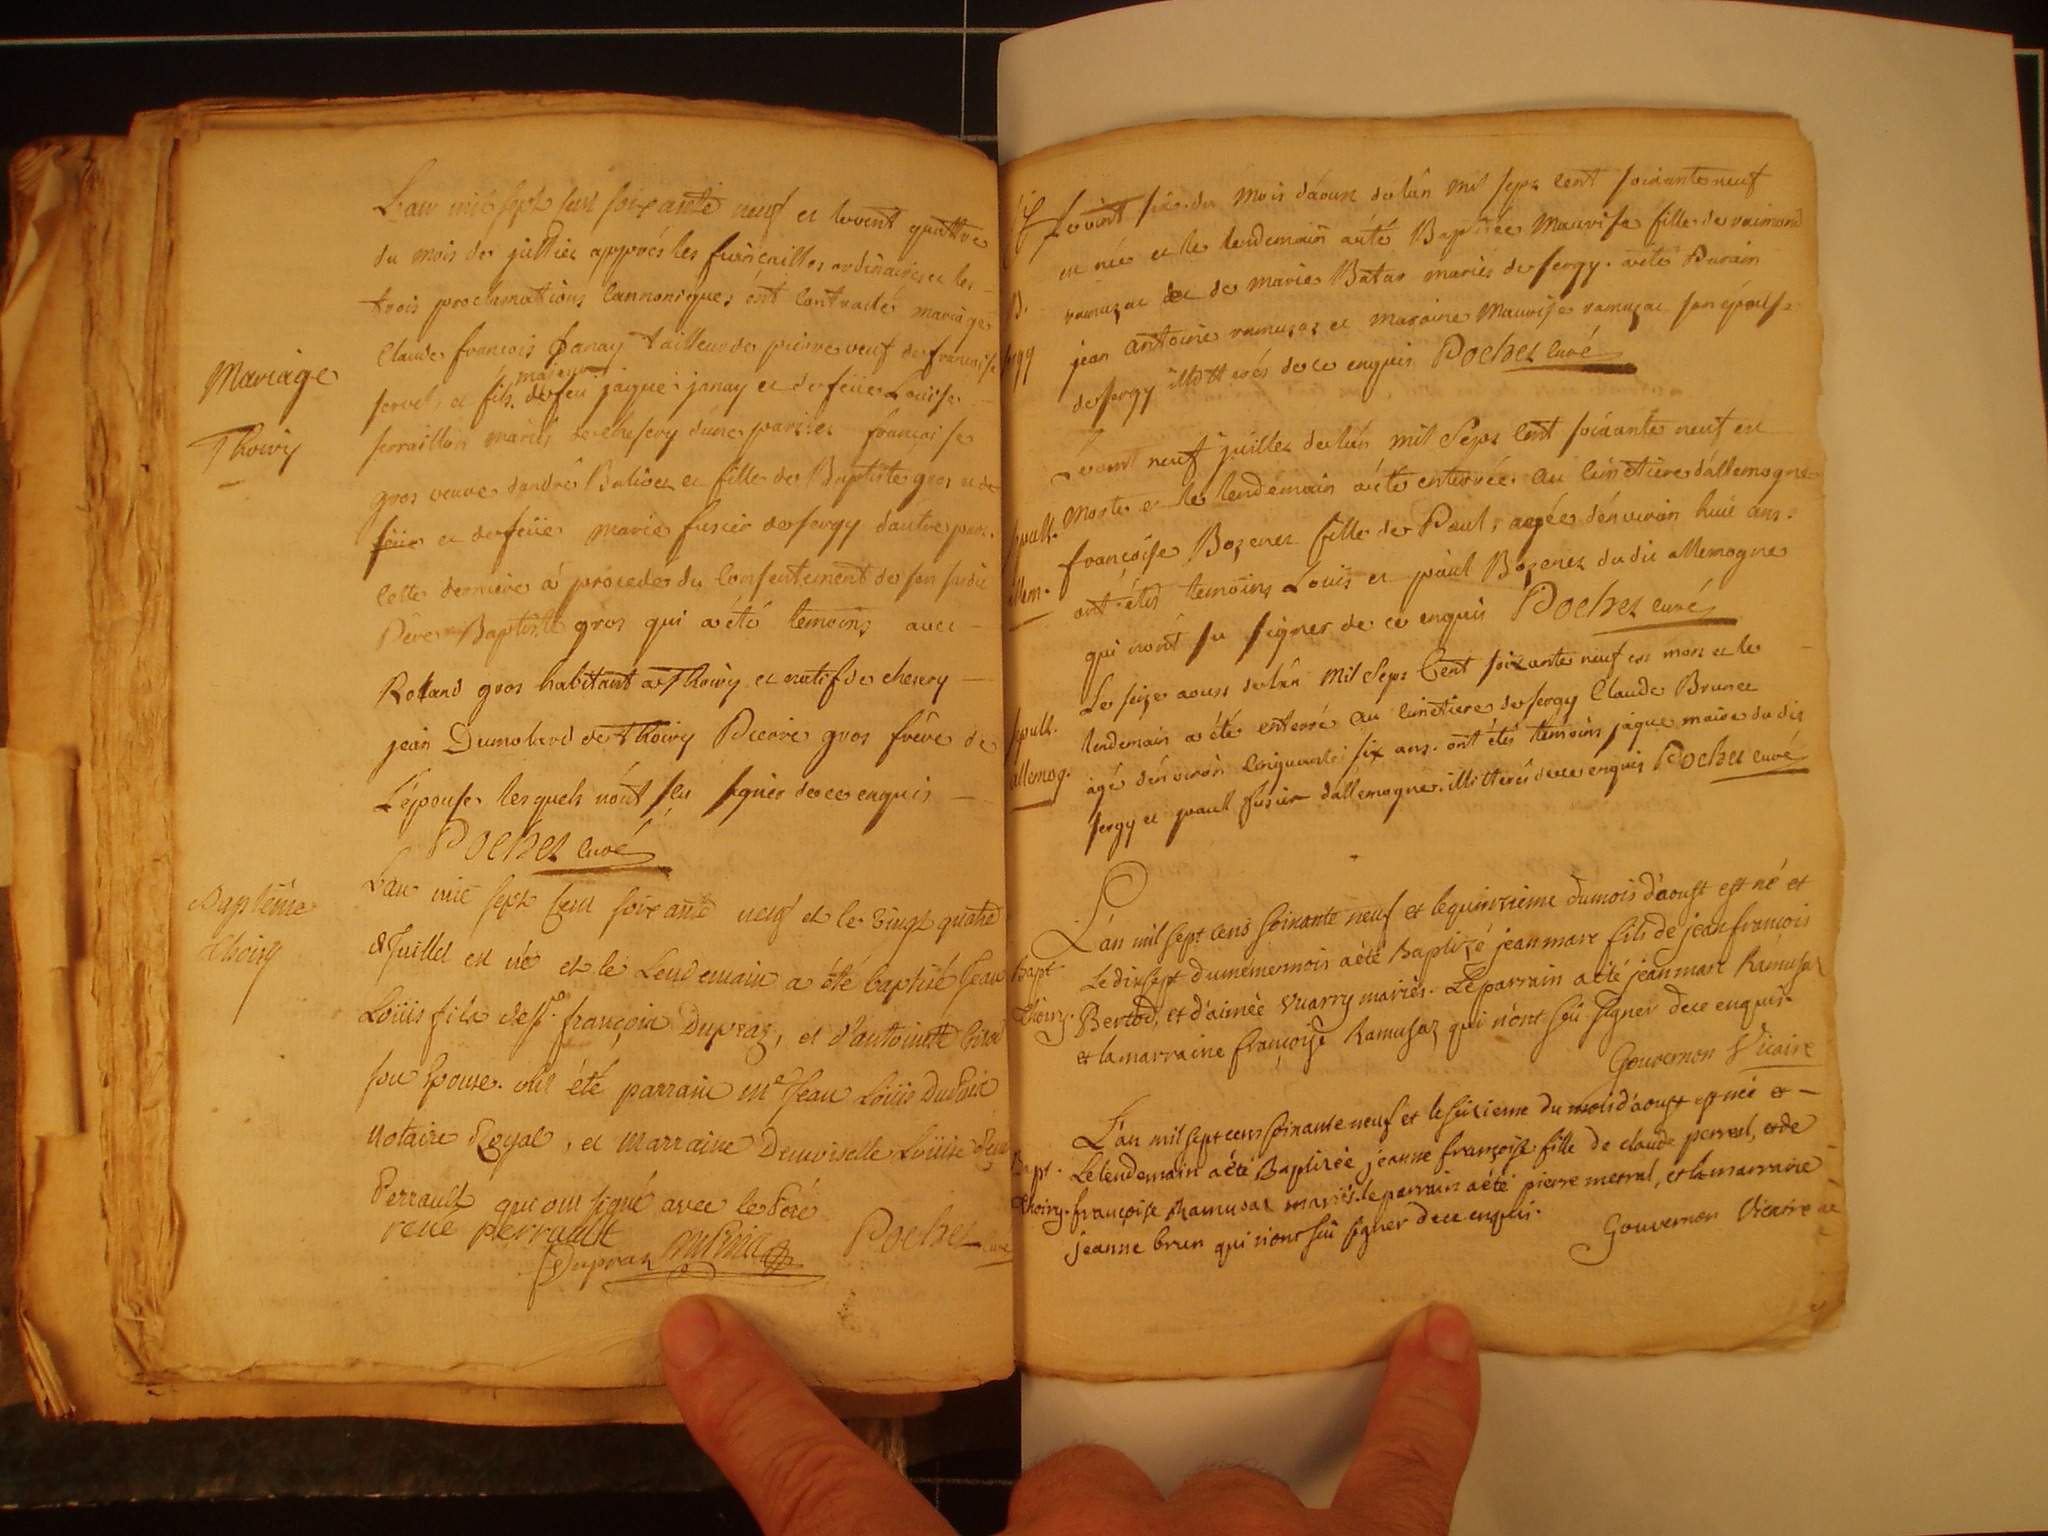 Mariage
Thoiry
L'an mil sept cent soixante neuf et le vent quattre
du mois de juillet apprés les fiuncailles ordinaires et les
trois proclamations cannoniques ont contracté mariage
Claude françois Janay tailleur de pierre veuf de francoise
servet et fils majeur de feu jaque janay et de feüe Louise
perraillon mariés de chesery d'une part et françoise
gros veuve d'andré Balivet et fille de Baptiste gros et de
feüe et de feüe Marie fusier de sergy d'autre part.
cette derniere a procedé du consentement de son sudit
Père Baptiste gros qui a été temoins avec
Rolland gros habitant a Thoiry et natif de chevry
jean Dumolard de Thoiry Pierre gros frère de
L'épouse lesquels n'ônt seu signer de ce enquis
Pochet curé
Baptême
thoiry
L'an mil sept cent soixante neuf et le vingt quatre
Juillet est né et le Lendemain a été baptisé Jean
Loüis fils de Sr. françois Dupraz, et d'antoinette Girod
son Epouse. ont été parrain Me Jean Loüis
Notaire Royal, et Marraine Demoiselle Loüise
Perrault qui ont signé avec le
rené perrault
Dupraz Pochet curé
Le vint six du Mois d'aoust de l'ân mil sept cent soixante neuf
est née et le lendemain a été Baptisée Maurise fille de raimond
ramuzat et de Marie Batar mariés de sergy. a été Parain
jean antoine ramuzaz et maraine Maurise ramuzat son épouse
de sergy illitterés de ce enquis Pochet curé
Sepult.
allem.
Le vint neuf juillet de l'ân mil Sept cent soixante neuf est
Morte et le lendemain a été enterrée au cimetiere d'allemogne
françoise Bozenet fille de Paul, agée d'environ huit ans.
ont étés temoins Louis et paul Bozenet du dit allemogne
qui n'ont su signer de ce enquis Pochet curé
Sepult.
allemog.
Le seize aoust de l'ân Mil Sept Cent soixante neuf est mort et le
lendemain a été enterré au cimetiere de sergy Claude Brunet
âgé d'environ cinquante six ans. ont étés temoins jaque maire du dit
sergy et paul fusier d'allemogne. illitterés de ce enquis Pochet curé
Bapt.
Thoiry.
L'an mil sept cens soixante neuf et le quinzieme du mois d'aoust est né et
Le dix sept du même mois a été Baptizé jean marc fils de jean françois
Bertod, et d'aimée Vuarry mariés. Le parrain a été jean marc Ramusaz
et la marraine françoise Ramusaz qui n'ont seü signer de ce enquis.
Gouvernon Vicaire
Bapt.
Thoiry.
L'an mil sept cens soixante neuf et le seizieme du mois d'aoust est née et
Le lendemain a été Baptizée jeanne françoise fille de claude perreal, et de
françoise Ramusaz mariés. le parrain a été pierre metral, et la marraine
jeanne brun qui n'ont seü signer de ce enquis.
Gouvernon Vicaire